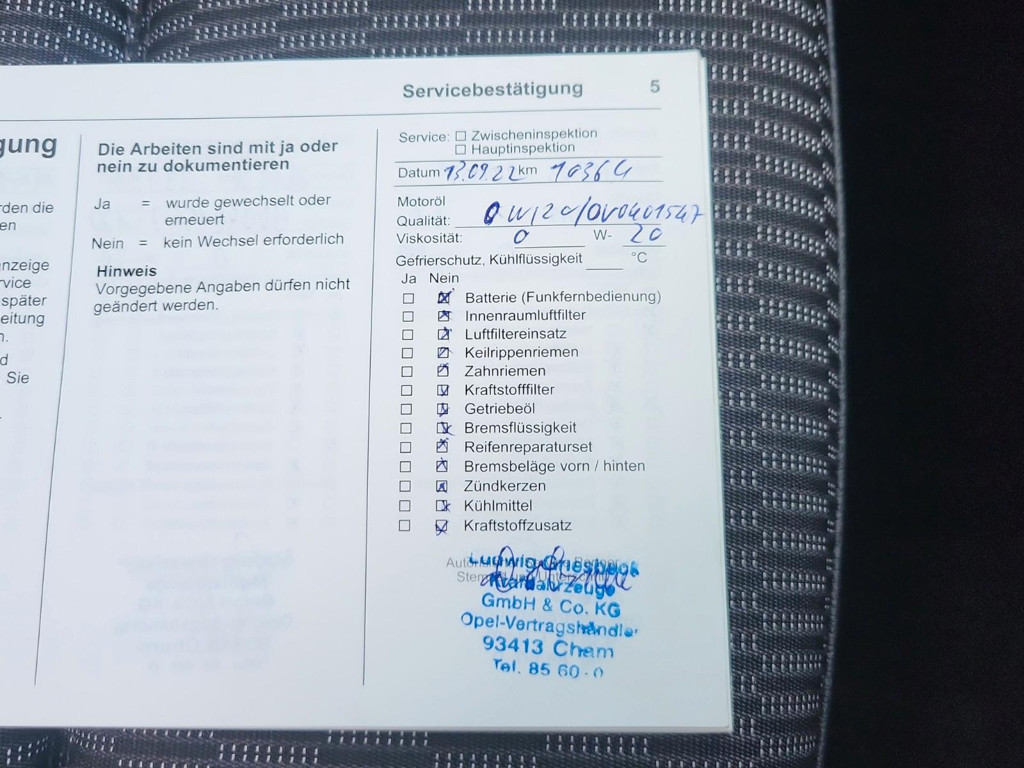 Servicebestätigung 5
gung
rden die
en
nzeige
rvice
später
eitung
n.
d
Sie
Die Arbeiten sind mit ja oder
nein zu dokumentieren
Ja = wurde gewechselt oder
erneuert
Nein = kein Wechsel erforderlich
Hinweis
Vorgegebene Angaben dürfen nicht
geändert werden.
Service: ☐ Zwischeninspektion
☐ Hauptinspektion
Datum 13.09.22 km 10364
Motoröl
Qualität: 0W20/OV0401547
Viskosität: 0 W- 20
Gefrierschutz, Kühlflüssigkeit °C
Ja Nein
☐ ☒ Batterie (Funkfernbedienung)
☐ ☒ Innenraumluftfilter
☐ ☒ Luftfiltereinsatz
☐ ☒ Keilrippenriemen
☐ ☒ Zahnriemen
☐ ☒ Kraftstofffilter
☐ ☒ Getriebeöl
☐ ☒ Bremsflüssigkeit
☐ ☒ Reifenreparaturset
☐ ☒ Bremsbeläge vorn / hinten
☐ ☒ Zündkerzen
☐ ☒ Kühlmittel
☐ ☒ Kraftstoffzusatz
Ludwig Griesbeck
Kraftfahrzeuge
GmbH & Co. KG
Opel-Vertragshändler
93413 Cham
Tel. 85 60-0